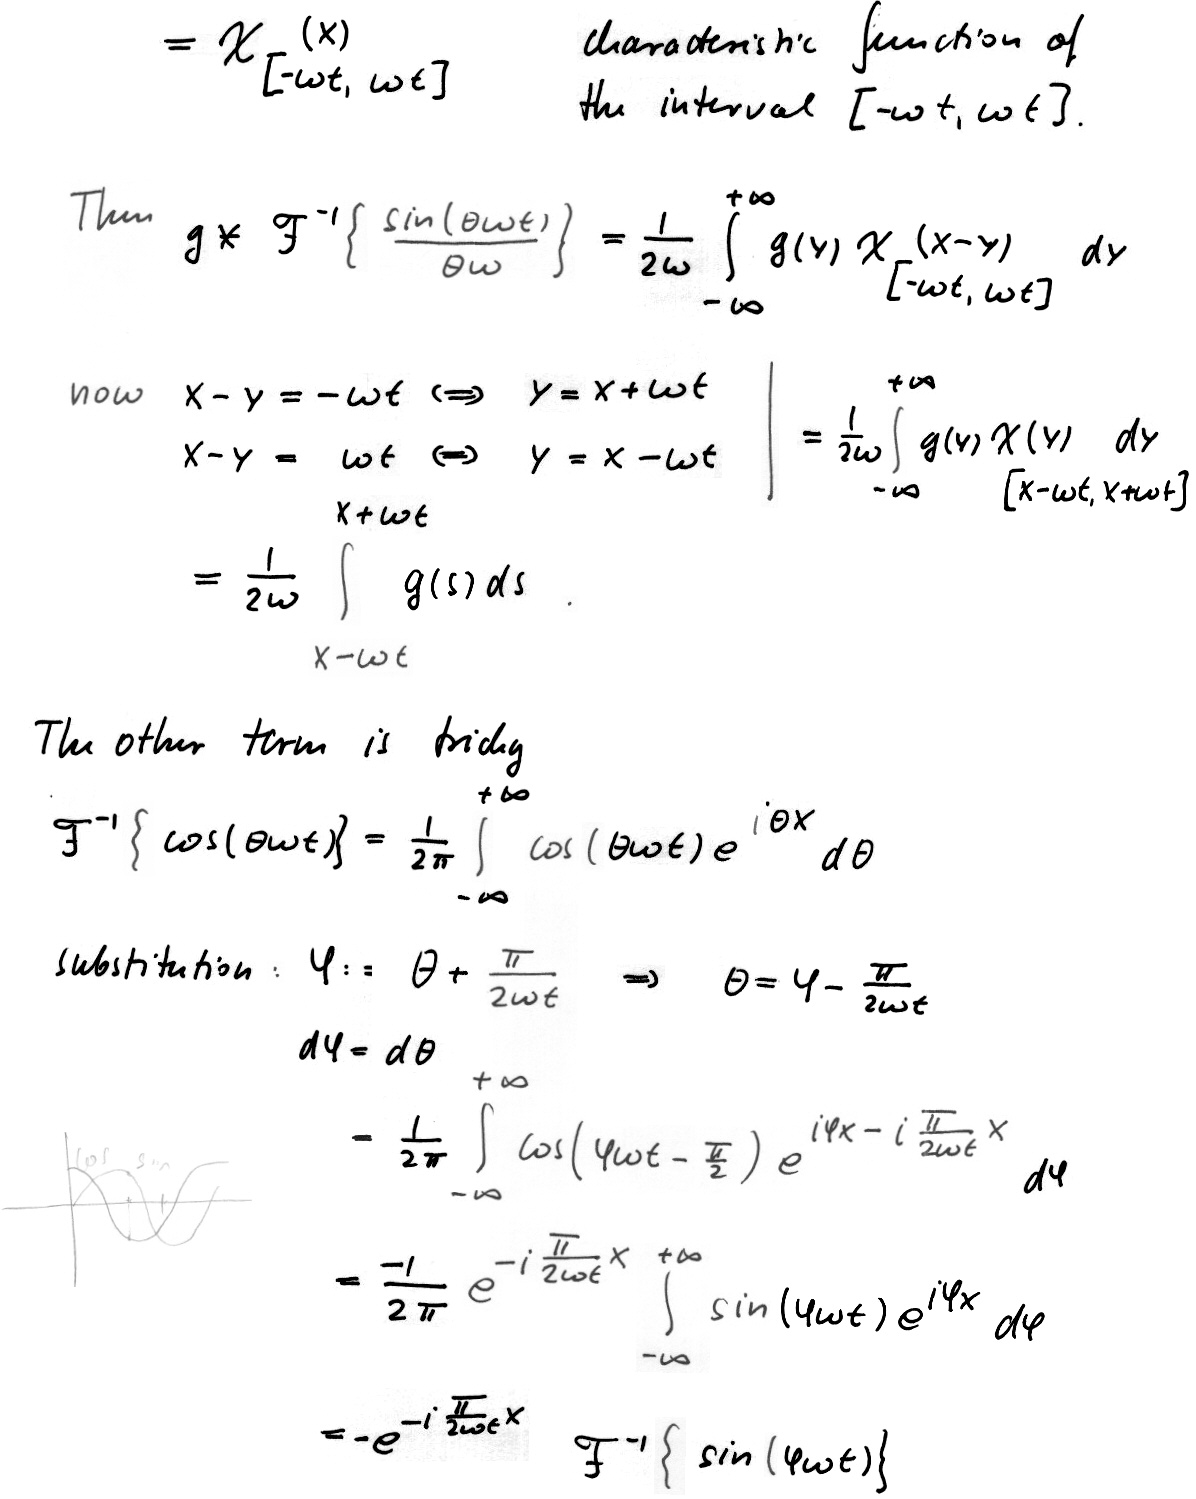 = χ_{[-ωt, ωt]}(x) characteristic function of
the interval [-ωt, ωt].
Then g * ℱ^{-1}{ sin(θωt) / θω } = 1/2ω ∫_{-∞}^{+∞} g(y) χ_{[-ωt, ωt]}(x-y) dy
now x-y = -ωt ⟺ y = x+ωt | = 1/2ω ∫_{-∞}^{+∞} g(y) χ_{[x-ωt, x+ωt]}(y) dy
x-y = ωt ⟺ y = x-ωt
= 1/2ω ∫_{x-ωt}^{x+ωt} g(s) ds .
The other term is tricky
ℱ^{-1}{ cos(θωt) } = 1/2π ∫_{-∞}^{+∞} cos(θωt) e^{iθx} dθ
substitution: φ := θ + π/2ωt ⇒ θ = φ - π/2ωt
dφ = dθ
= 1/2π ∫_{-∞}^{+∞} cos(φωt - π/2) e^{iφx - i π/2ωt x} dφ
cos sin
= -1/2π e^{-i π/2ωt x} ∫_{-∞}^{+∞} sin(φωt) e^{iφx} dφ
= -e^{-i π/2ωt x} ℱ^{-1}{ sin(φωt) }